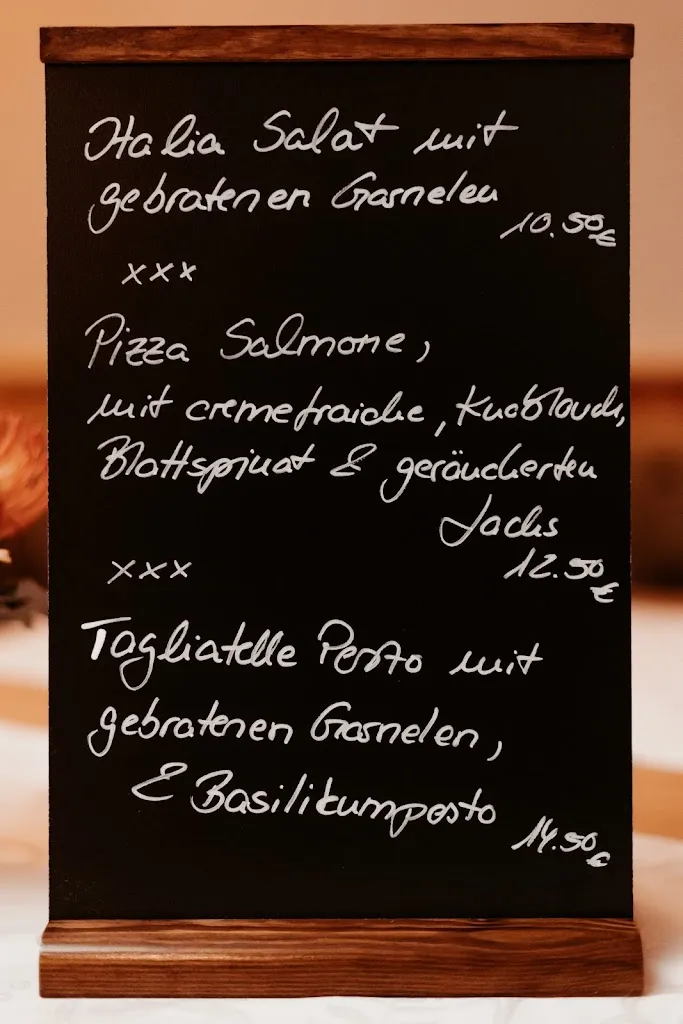 Italia Salat mit
gebratenen Garnelen
10.50€
xxx
Pizza Salmone,
mit cremefraiche, Knoblauch,
Blattspinat & geräucherten
Lachs
12.50€
xxx
Tagliatelle Pesto mit
gebratenen Garnelen,
& Basilikumpesto
14.50€